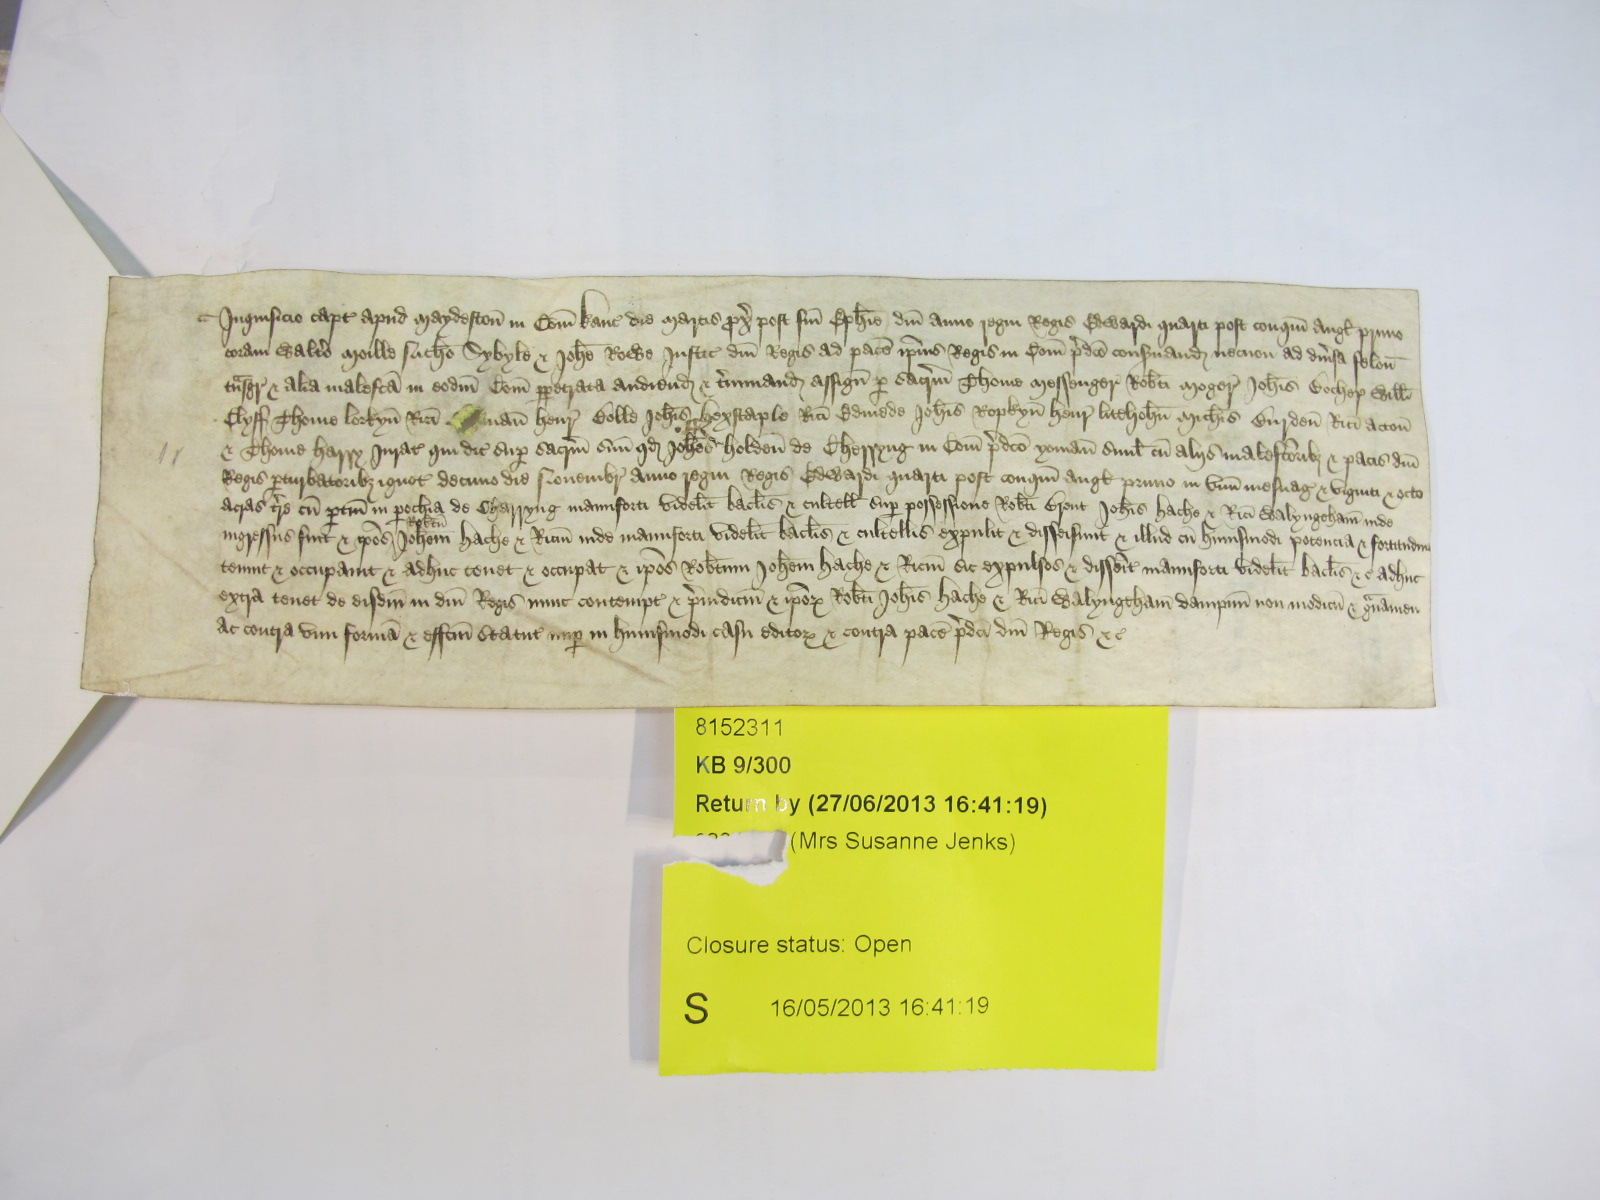 Inquisicio capt apud Maydeston in Com Kanc die Martis px post fm Ephie dni anno regni Regis Edwardi quarti post conqm Angl primo
coram Walto Moille Sybyle & Johe Rowe Justic dni Regis ad pacem ipius Regis in Com pdco conservand necnon ad diversa felon
tnsgr & alia malefca in eodm Com ppetrata audiend & tminand assign p sacrm Thome Messenger Robti Moger Johis Gocher Willi
Clyff Thome Lorkyn Rici man Henr Golle Johis Hexstaple Rici Edmede Johis Ropkyn Henr Litthohn Michis Burden Rici Acton
& Thome Harry Jurat qui dic sup sacrm suum qd Johes Holden de Charryng in Com pdco yoman simul cu aliis malefcoribz & pacis dni
Regis pturbatoribz ignot decimo die Novembr anno regni Regis Edwardi quarti post conqm Angl primo in unu mesuag & viginti & octo
acras tre cu ptin in pochia de Charryng manuforti videlt baclis & cultell sup possessione Robti Brent Johis Hache & Rici Walyngham inde
Robtm
ingressus fuit & ipos Johem Hache & Ricm inde manuforti videlt baclis & cultellis expulit & disseisiunt & illud cu humsmodi potencia & fortitudine
tenuit & occupavit & adhuc tenet & occupat & ipos Robtum Johem Hache & Ricm sic expulsos & manuforti videlt baclis &c adhuc
extra tenet de eisdm in dni Regis nunc contempt & piudicm & ipor Robti Johis Hache & Rici Walyngham dampnu non modicu & gvamen
ac contra vim forma & effcm statut nup in humsmodi casu editor & contra pace pdci dni Regis &c
8152311
KB 9/300
Return by (27/06/2013 16:41:19)
(Mrs Susanne Jenks)
Closure status: Open
S 16/05/2013 16:41:19